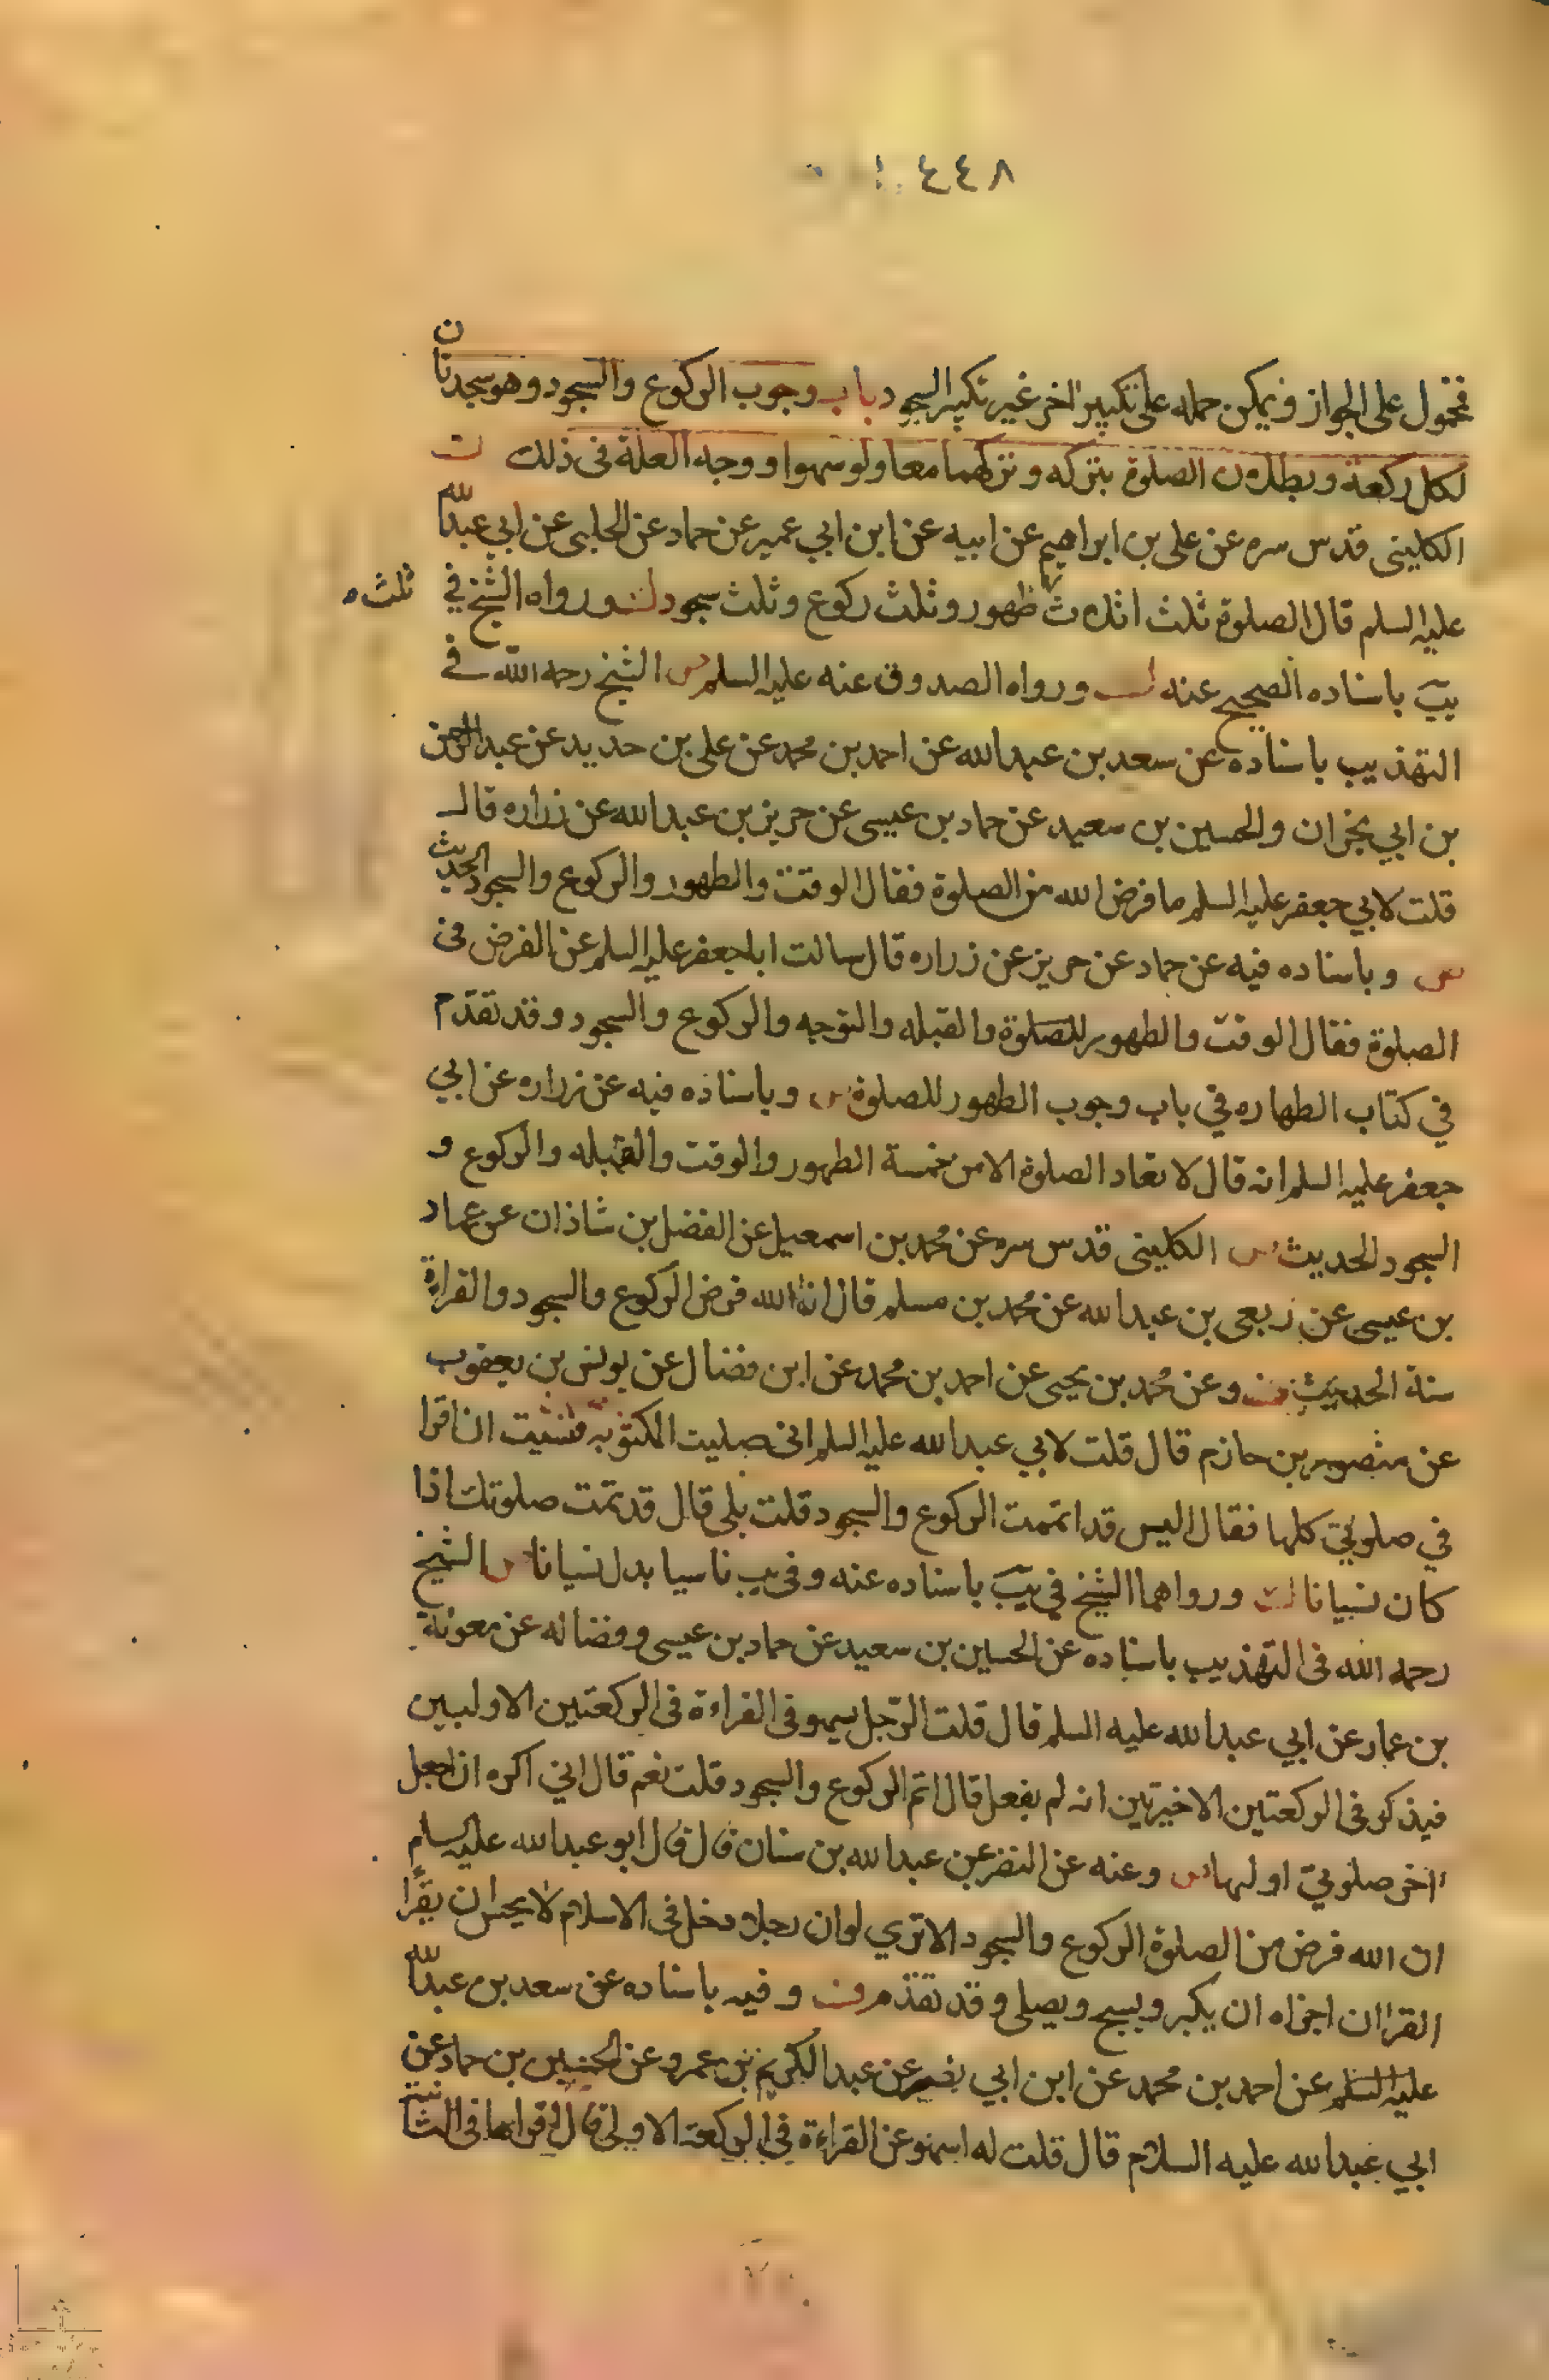 ٤٤٨
فمحمول على الجواز ويمكن حمله على تكبير اخر غير تكبير السجود باب وجوب الركوع والسجود وهو سجدتان
لكل ركعة وبطلان الصلوة بتركه وتركهما معا ولو سهوا ووجه العلة في ذلك
الكليني قدس سره عن علي بن ابراهيم عن ابيه عن ابن ابي عمير عن حماد عن الحلبي عن ابي عبدالله
عليه السلم قال الصلوة ثلث اثلاث ثلث طهور وثلث ركوع وثلث سجود ورواه الشيخ في
يب باسناده الصحيح عنه ورواه الصدوق عنه عليه السلم الشيخ رحمه الله في
التهذيب باسناده عن سعد بن عبدالله عن احمد بن محمد عن علي بن حديد عن عبدالرحمن
بن ابي نجران والحسين بن سعيد عن حماد بن عيسى عن حريز بن عبدالله عن زراره قال
قلت لابي جعفر عليه السلم ما فرض الله من الصلوة فقال الوقت والطهور والركوع والسجود الحديث
وباسناده فيه عن حماد عن حريز عن زراره قال سالت اباجعفر عليه السلم عن الفرض في
الصلوة فقال الوقت والطهور للصلوة والقبله والتوجه والركوع والسجود وقد تقدم
في كتاب الطهاره في باب وجوب الطهور للصلوة وباسناده فيه عن زراره عن ابي
جعفر عليه السلم انه قال لا تعاد الصلوة الا من خمسة الطهور والوقت والقبله والركوع و
السجود الحديث الكليني قدس سره عن محمد بن اسمعيل عن الفضل بن شاذان عن حماد
بن عيسى عن ربعي بن عبدالله عن محمد بن مسلم قال ان الله فرض الركوع والسجود والقراءة
سنة الحديث وعن محمد بن يحيى عن احمد بن محمد عن ابن فضال عن يونس بن يعقوب
عن منصور بن حازم قال قلت لابي عبدالله عليه السلم اني صليت المكتوبة فنسيت ان اقرا
في صلوتي كلها فقال اليس قد اتممت الركوع والسجود قلت بلى قال قد تمت صلوتك اذا
كان نسيانا ورواهما الشيخ في يب باسناده عنه وفي يب ناسيا بدل نسيانا الشيخ
رحمه الله في التهذيب باسناده عن الحسين بن سعيد عن حماد بن عيسى وفضاله عن معوية
بن عمار عن ابي عبدالله عليه السلم قال قلت الرجل يسهو في القراءة في الركعتين الاوليين
فيذكر في الركعتين الاخيرتين انه لم يفعل قال اتم الركوع والسجود قلت نعم قال اني اكره ان اجعل
اخر صلوتي اولها وعنه عن النضر عن عبدالله بن سنان قال قال ابو عبدالله عليه السلم
ان الله فرض من الصلوة الركوع والسجود الا تري لو ان رجلا دخل في الاسلام لا يحسن ان يقرا
القران اجزاه ان يكبر ويسبح ويصلي وقد تقدم وفيه باسناده عن سعد بن عبدالله
عليه السلم عن احمد بن محمد عن ابن ابي نصر عن عبدالكريم بن عمرو عن الحسين بن حماد عن
ابي عبدالله عليه السلام قال قلت له اسهو عن القراءة في الركعة الاولى قال اقراها في الثانية